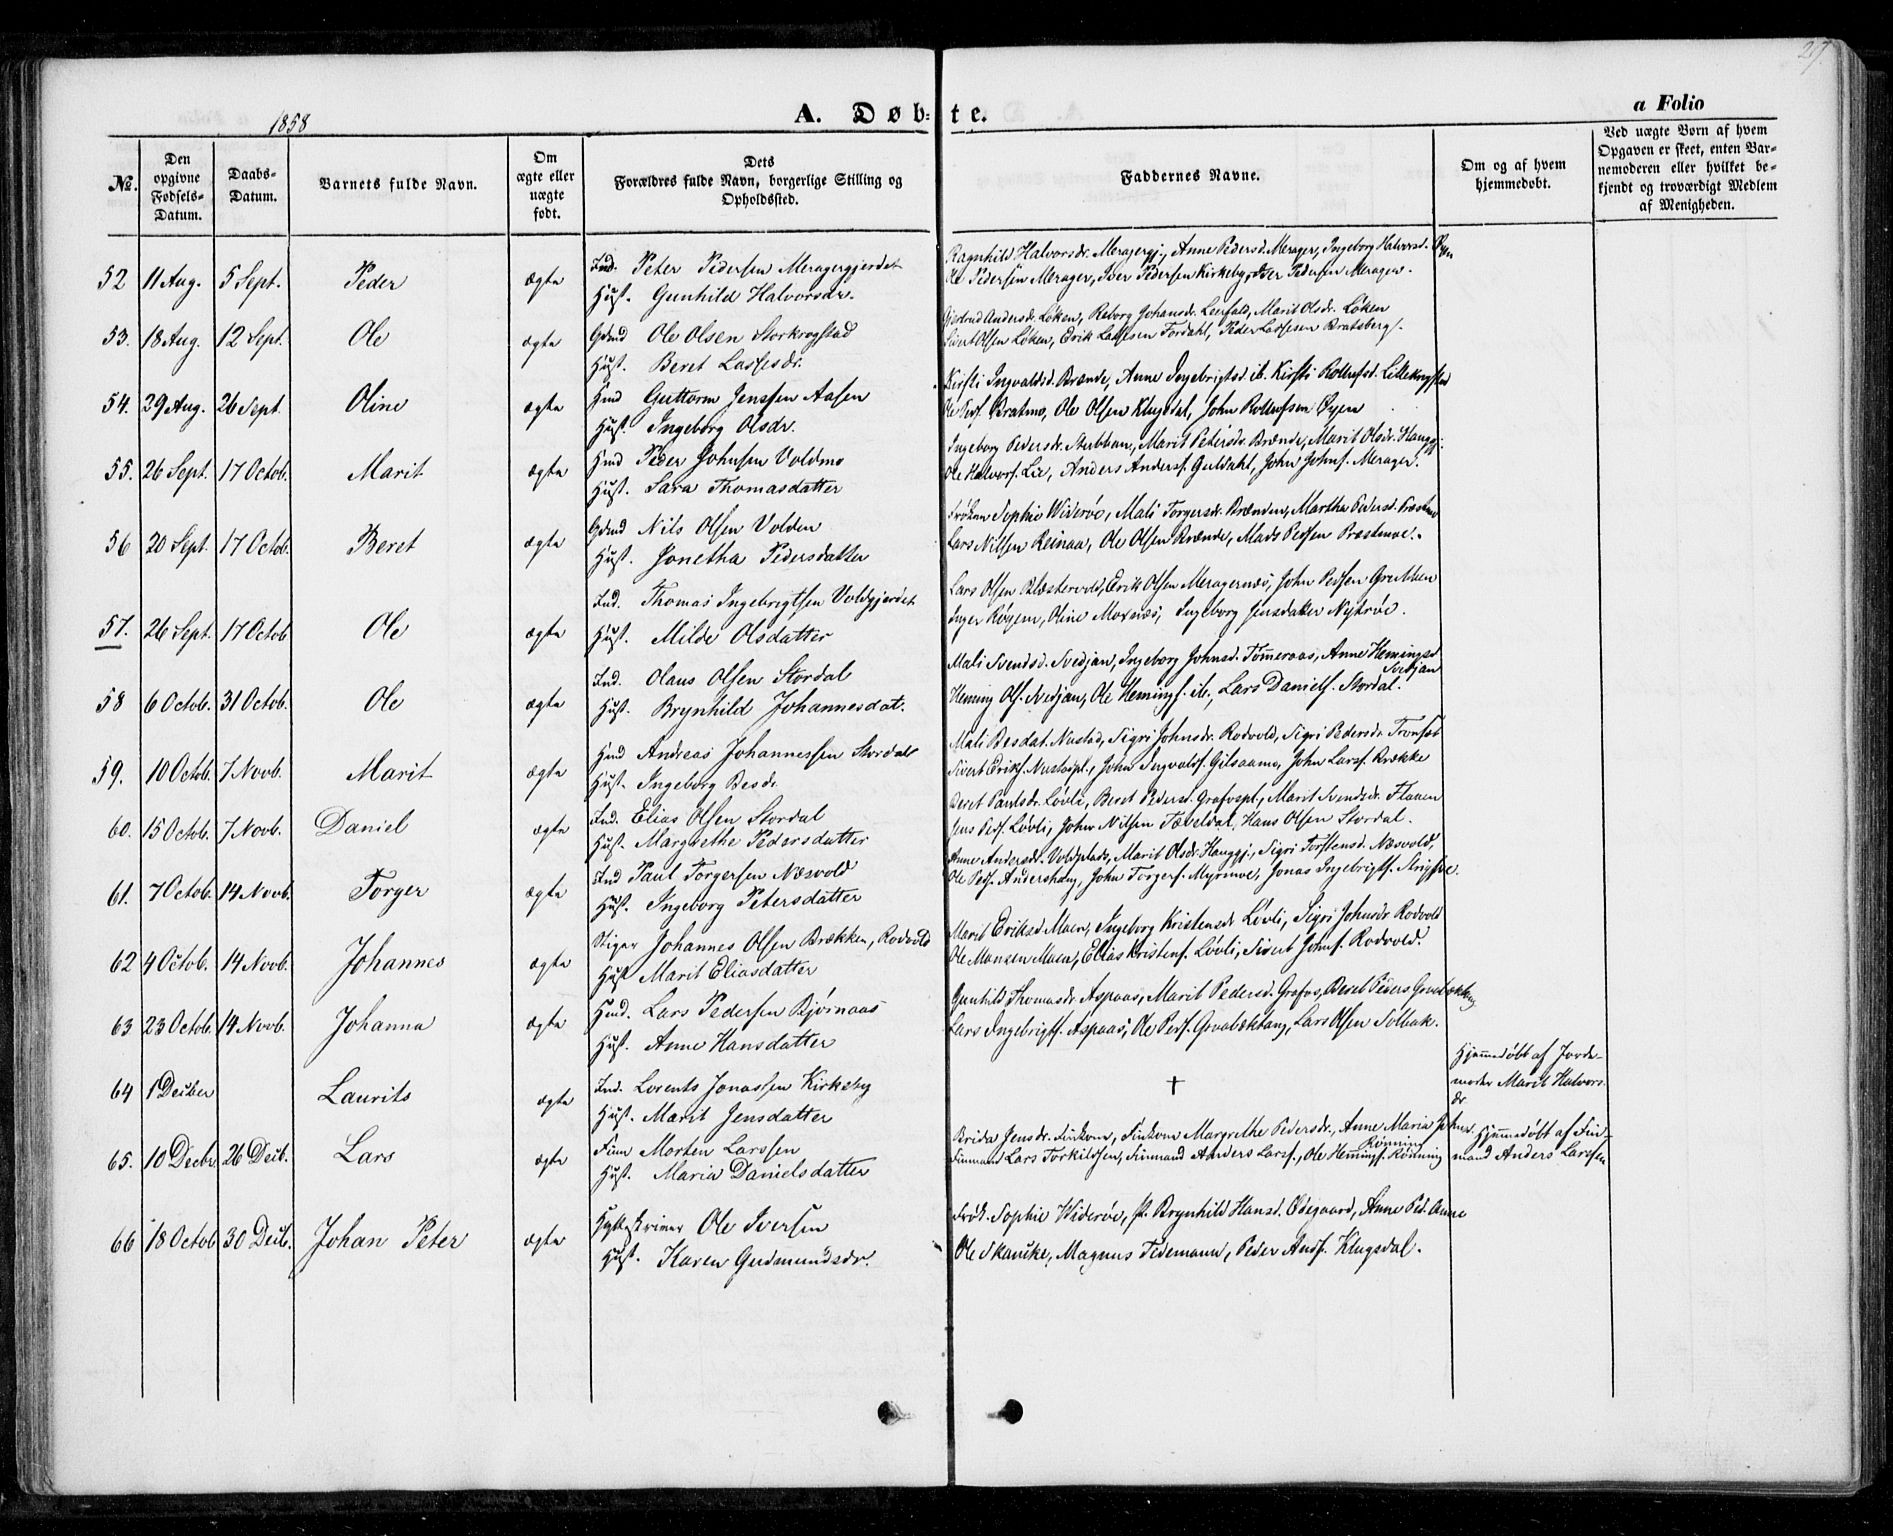 27.
1858
A. Døb-te.
a Folio
No.
Den opgivne Fødsels-Datum.
Daabs-Datum.
Barnets fulde Navn.
Om ægte eller uægte født.
Dets Forældres fulde Navn, borgerlige Stilling og Opholdssted.
Faddernes Navne.
Om og af hvem hjemmedøbt.
Ved uægte Børn af hvem Opgaven er skeet, enten Barnemoderen eller hvilket bekjendt og troværdigt Medlem af Menigheden.
52 11 Aug. 5 Sept. Peder ægte Ind. Peter Pedersen Meragergjerdet
Hust. Gunhild Halvorsdr.
Ragnhild Halvorsdr. Meragergj., Anne Pedersd. Merager, Ingeborg Halvorsd. Øyen
Ole Pedersen Merager, Iver Pedersen Kirkeby, Iver Pedersen Merager.
53. 18 Aug. 12 Sept. Ole ægte Gdmd Ole Olsen Storkrogstad
Hust. Beret Lassesdr.
Gjertrud Andersdr. Løken, Reborg Johansdr. Leerfald, Marit Olsdr. Løken
Sivert Olsen Løken, Erik Lassesen Fordahl, Peder Lassesen Bratsberg.
54. 29 Aug. 26 Sept. Oline ægte Hmd Guttorm Jenssen Aasen
Hust. Ingeborg Olsdr.
Kirsti Ingvaldsd. Brænde, Anne Ingebrigtsd. ib. Kirsti Rollefsd. Lillekrogstad
Ole Pedf. Bratmo, Ole Olsen Klugsdal, John Rollufsen Øyen
55. 26 Sept. 17 Octob. Marit ægte Hmd Peder Johnsen Voldmo
Hust. Sara Thomasdatter
Ingeborg Pedersdr. Stubban, Marit Petersdr. Brænde, Marit Olsdr. Haugj.
Ole Halvorf. Lie, Anders Andersf. Guldahl, John Johnf. Merager.
56 20 Sept. 17 Octob. Beret ægte Gdmd Nils Olsen Volden
Hust. Jonetha Pedersdatter
Frøken Sophie Widerøe, Mali Torgersdr. Brænden, Martha Pedersd. Præstmo
Lars Nilsen Reinaa, Ole Olsen Brænde, Mads Pedsen Præstmoe.
57. 26 Sept. 17 Octob Ole ægte Ind. Thomas Ingebrigtsen Voldgjerdet
Hust. Milde Olsdatter
Lars Olsen Blæstervold, Erik Olsen Meragernæs, John Pedsen Grubben
Inger Røyem, Oline Moxnæs, Ingeborg Jensdatter Nybrøe.
58 6 Octob. 31 Octob. Ole ægte Ind. Olaus Olsen Stordal
Hust. Brynhild Johannesdat.
Mali Svendsd. Svedjan, Ingeborg Johnsd. Tømeraas, Anne Hemingsd Svedjan
Heming Ols. Svedjan, Ole Hemingf. ib., Lars Danielf. Stordal.
59. 10 Octob. 7 Novb. Marit ægte Hmd Andreas Johannessen Stordal
Hust. Ingeborg Besdr.
Mali Besdat. Nustad, Sigri Johnsdr. Rodvold, Sigri Pedersdr. Tronset
Sivert Erikf. Nustadpl., John Ingvaldf. Gilsaamo, John Larsf. Brække
60. 15 Octob. 7 Novb. Daniel ægte Ind. Elias Olsen Stordal
Hust. Margrethe Pedersdatter
Beret Paulsdr. Løvli, Beret Pedersd. Grafospl., Marit Svendsdr. Flauen
Jens Pedf. Løvli, John Nilsen Tæveldal, Hans Olsen Stordal.
61. 7 Octob. 14 Novb. Torger ægte Ind Paul Torgersen Næsvold
Hust. Ingeborg Petersdatter
Anne Andersdr. Voldplads, Marit Olsdr. Haugj., Sigri Torstensd. Næsvold,
Ole Pedf. Andershaug, John Torgerf. Myrmoe, Jonas Ingebrigtf.
62 4 Octob. 14 Novb. Johannes ægte Stiger Johannes Olsen Brækken, Rodvold
Hust Marit Eliasdatter
Marit Eriksd Moen, Ingeborg Kristensdr. Løvli, Sigri Johnsdr Rodvold
Ole Monsen Moen, Elias Kristenf. Løvli, Sivert Johnf. Rodvold.
63 23 Octob. 14 Novb. Johanna ægte Hmd. Lars Pedersen Bjørnaas
Hust. Anne Hansdatter
Gunhild Thomasdr. Aspaas, Marit Pedersd. Grafos, Beret Peders Graabækhaug
Lars Ingebrigtf. Aspaas, Ole Pedf. Graabækhaug, Lars Olsen Solbak.
64 1 Decber Laurits ægte Ind. Lorents Jonassen Kirkeby
Hust. Marit Jensdatter
+
Hjemmedøbt af Jordemoder Marit Halvorsdr.
65. 10 Decbr 26 Decb. Lars ægte Fin Morten Larssen
Hust. Maria Danielsdatter
Brida Jensdr. Finkone, Finkone Margrethe Pedersdr., Anne Maria Johns. Rønning
Finmand Lars Torkildsen, Finmand Anders Larsf., Ole Hemingf. Rønning
Hjemmedøbt af Finmand Anders Larssen
66 18 Octob 30 Decb. Johan Peter ægte Hytteskriver Ole Iversen
Hust. Karen Gudmundsdr.
Frøk. Sophie Widerøe, P. Brynhild Hansd. Ødegaard, Anne Ped. Anne
Ole Skancke, Magnus Tidemann, Peder Andf. Klugsdal.